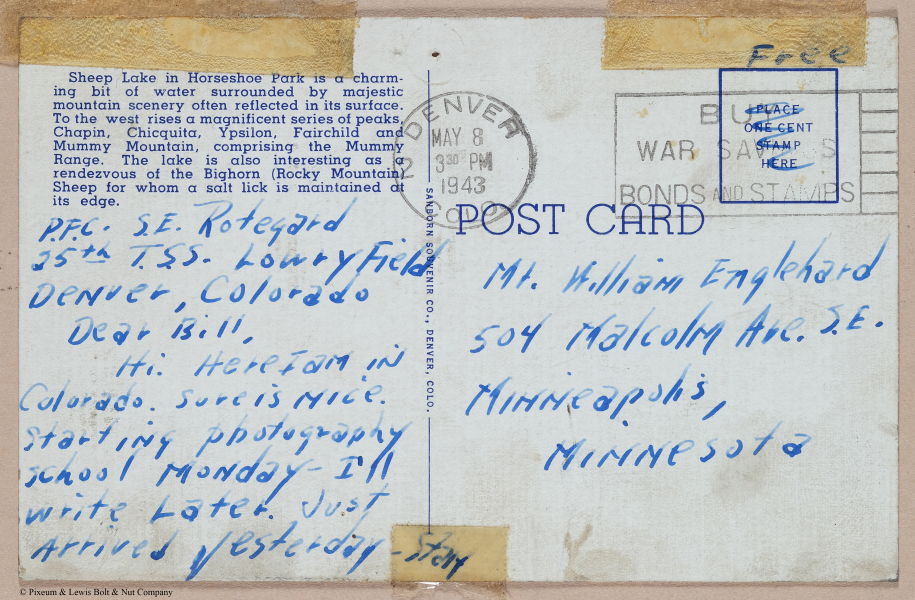 Sheep Lake in Horseshoe Park is a charm-
ing bit of water surrounded by majestic
mountain scenery often reflected in its surface.
To the west rises a magnificent series of peaks,
Chapin, Chicquita, Ypsilon, Fairchild and
Mummy Mountain, comprising the Mummy
Range. The lake is also interesting as a
rendezvous of the Bighorn (Rocky Mountain
Sheep for whom a salt lick is maintained at
its edge.
P.F.C. S.E. Rotegard
35th T.S.S. Lowry Field
Denver, Colorado
Dear Bill,
Hi. Here I am in
Colorado. Sure is nice.
Starting photography
school Monday - I'll
write Later. Just
Arrived yesterday - Stan
SANBORN SOUVENIR CO., DENVER, COLO.
DENVER
2
MAY 8
3 30 PM
1943
COLO.
Free
PLACE
ONE CENT
STAMP
HERE
BUY
WAR SAVINGS
BONDS AND STAMPS
POST CARD
Mr. William Englehard
504 Malcolm Ave. S.E.
Minneapolis,
Minnesota
© Pixeum & Lewis Bolt & Nut Company